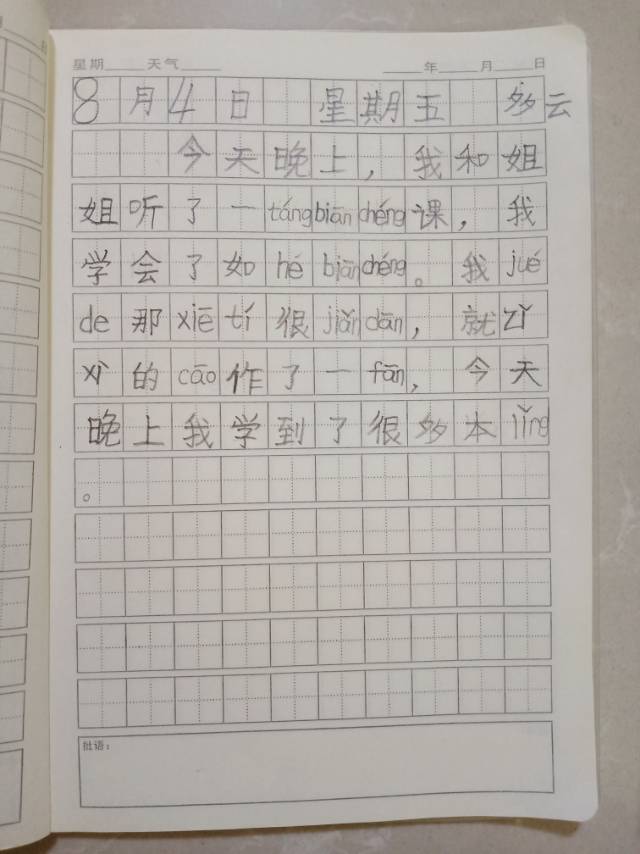 星期 天气 年 月 日
8月4日 星期五 多云
今天晚上，我和姐
姐听了一tángbiānchéng课，我
学会了如hé biānchéng。我jué
de那xiē tí很jiǎn dān，就zǐ
xì的cāo作了一fān，今天
晚上我学到了很多本jǐng
。
批语：